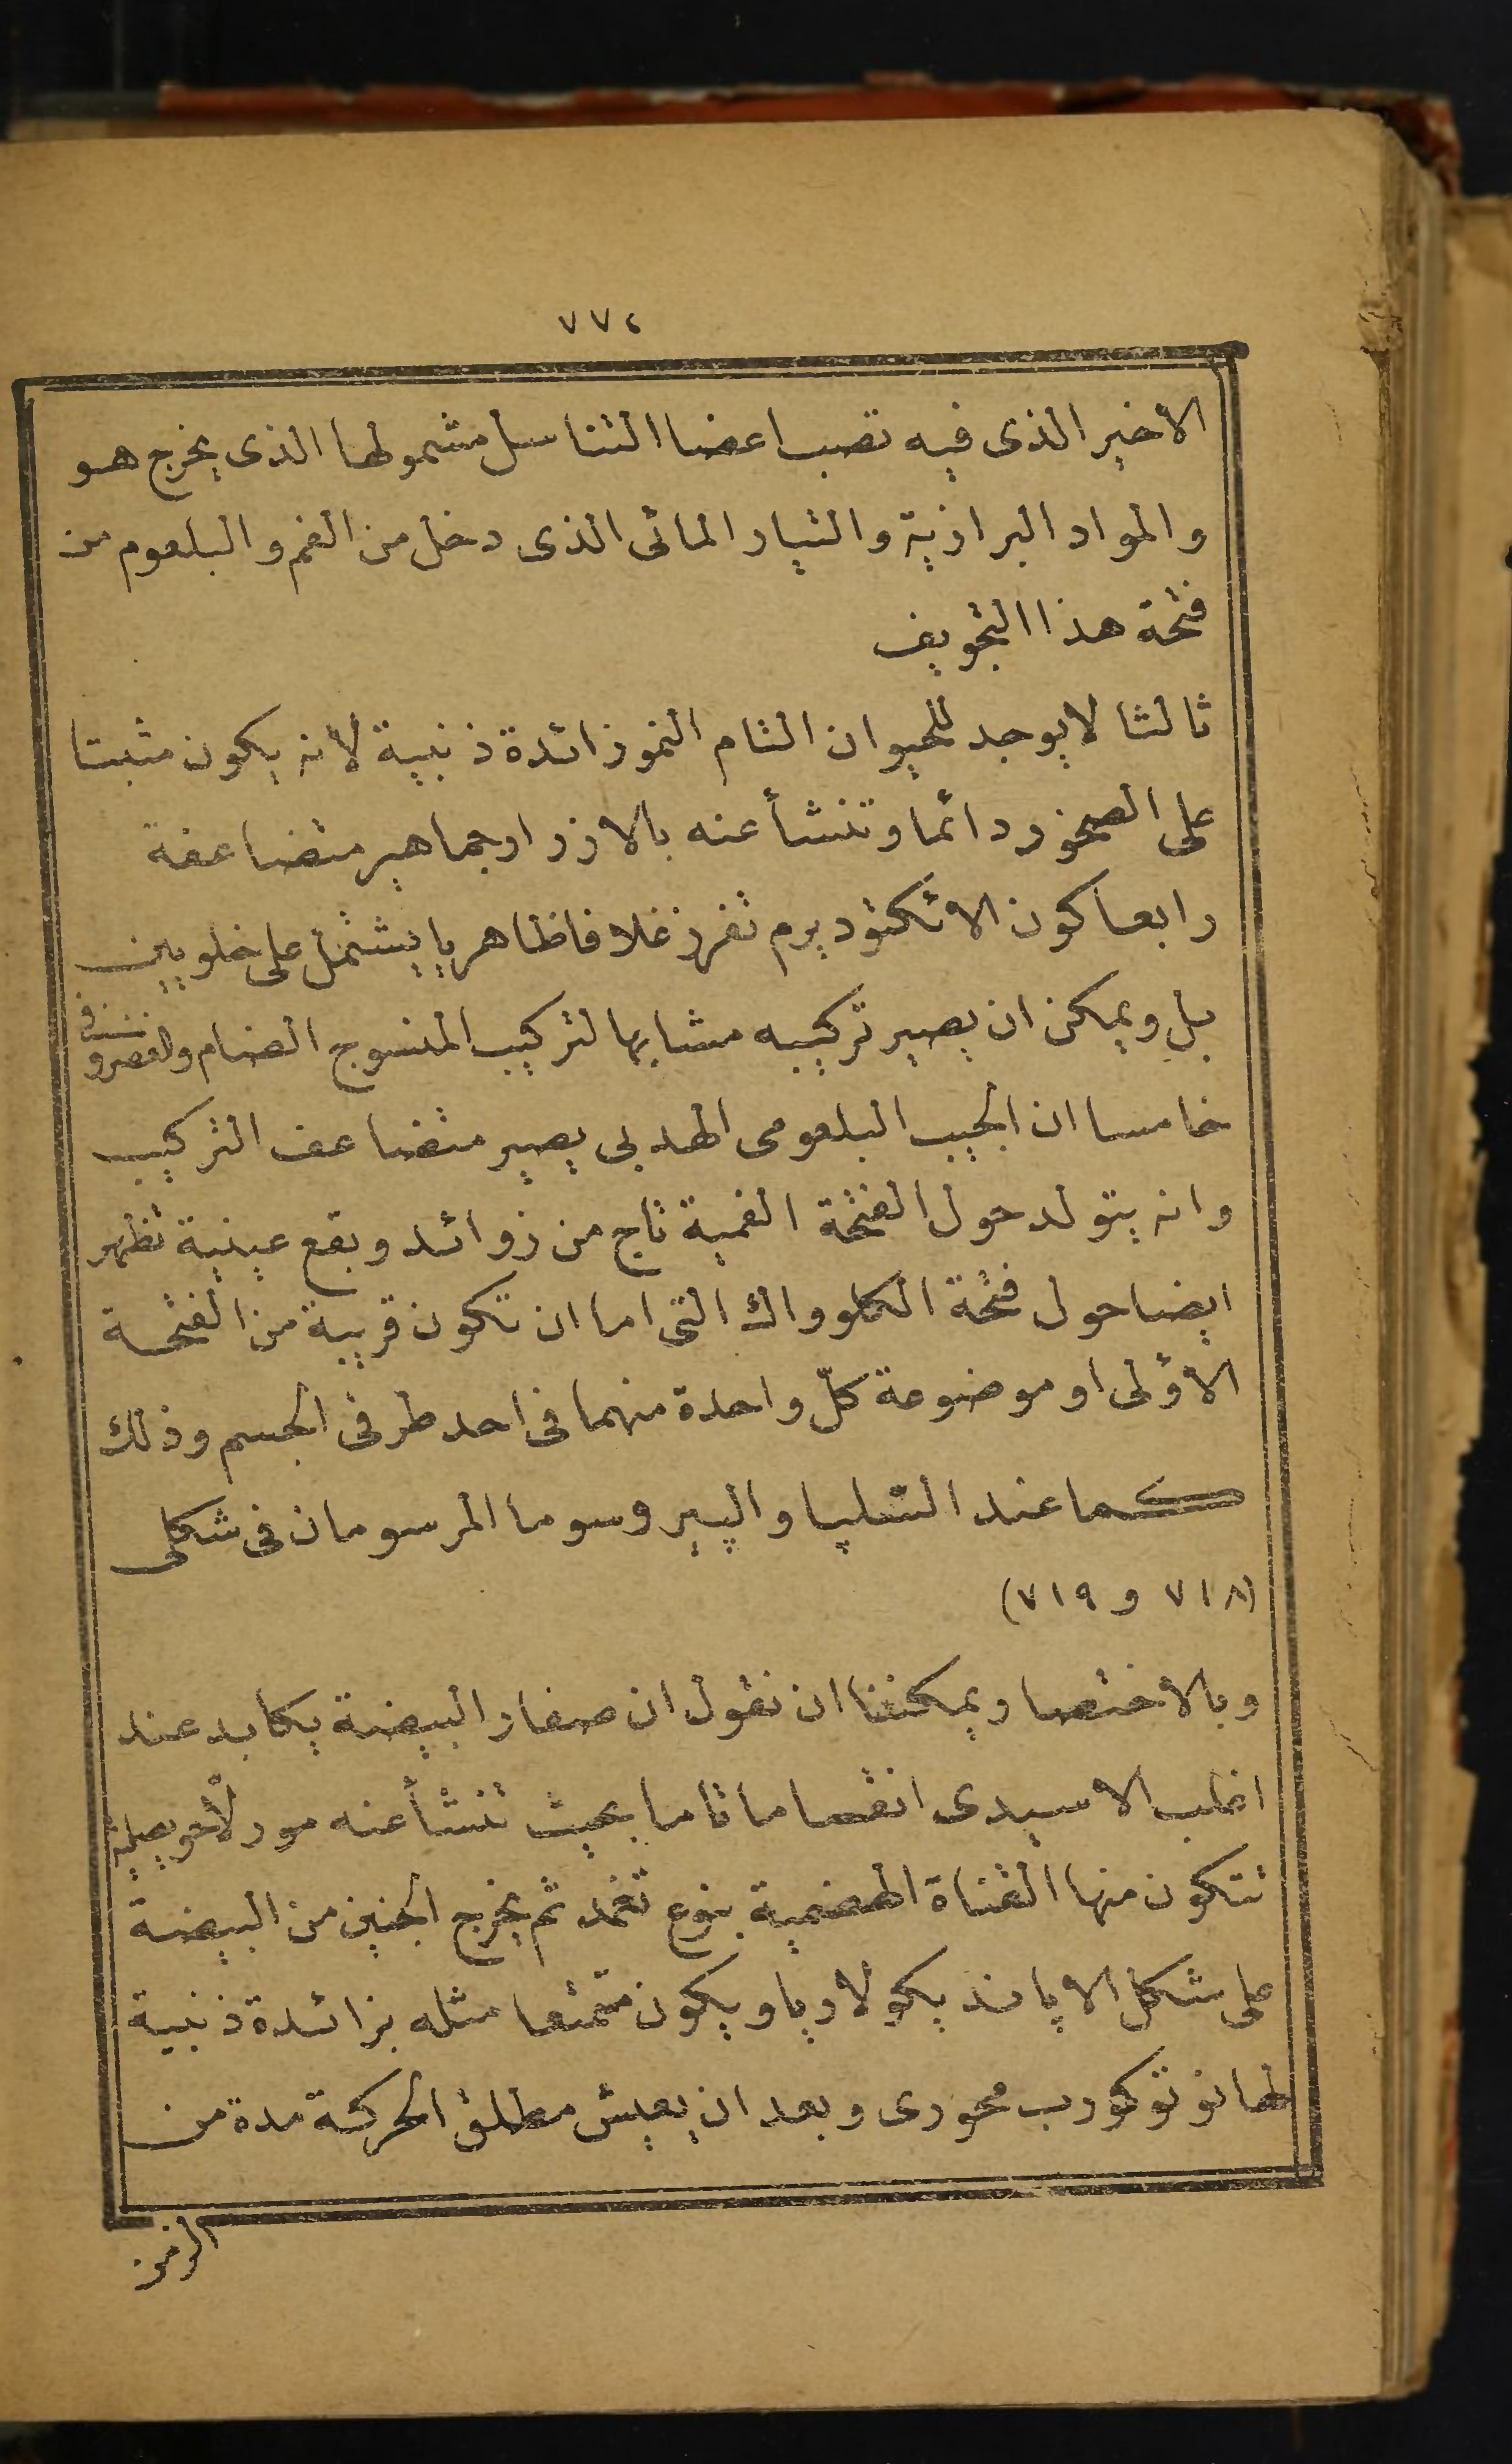 ٧٧٢
الاخير الذى فيه تصب اعضا التناسل مشمولها الذى يخرج هو
والمواد البرازية والتيار المائى الذى دخل من الفم والبلعوم من
فتحة هذا التجويف
ثالثا لا يوجد للحيوان التام النمو زائدة ذنبية لانه يكون مثبتا
على الصخور دائما وتنشأ عنه بالازرار جماهير متضاعفة
رابعا كون الاتكتوديرم تفرز غلافا ظاهريا يشتمل على خلويين
بل ويمكن ان يصير تركيبه مشابها لتركيب المنسوج الضام والغضروفى
خامسا ان الجيب البلعومى الهدبى يصير متضاعف التركيب
وانه يتولد حول الفتحة الفمية تاج من زوائد وبقع عينية تظهر
ايضا حول فتحة الكلوواك التى اما ان تكون قريبة من الفتحة
الاولى او موضوعة كلّ واحدة منهما فى احد طرفى الجسم وذلك
كما عند السلپا والپيروسوما المرسومان فى شكلى
(٧١٨ و ٧١٩)
وبالاختصار يمكننا ان نقول ان صفار البيضة يكابد عند
اغلب الاسيدى انقساما تاما بحيث تنشأ عنه مورلّا حويصلية
تتكون منها القناة الهضمية بنوع تغمد ثم يخرج الجنين من البيضة
على شكل الاپانديكولاريا ويكون متمتعا مثله بزائدة ذنبية
لها نوتوكورب محورى وبعد ان يعيش مطلق الحركة مدة من
الزمن